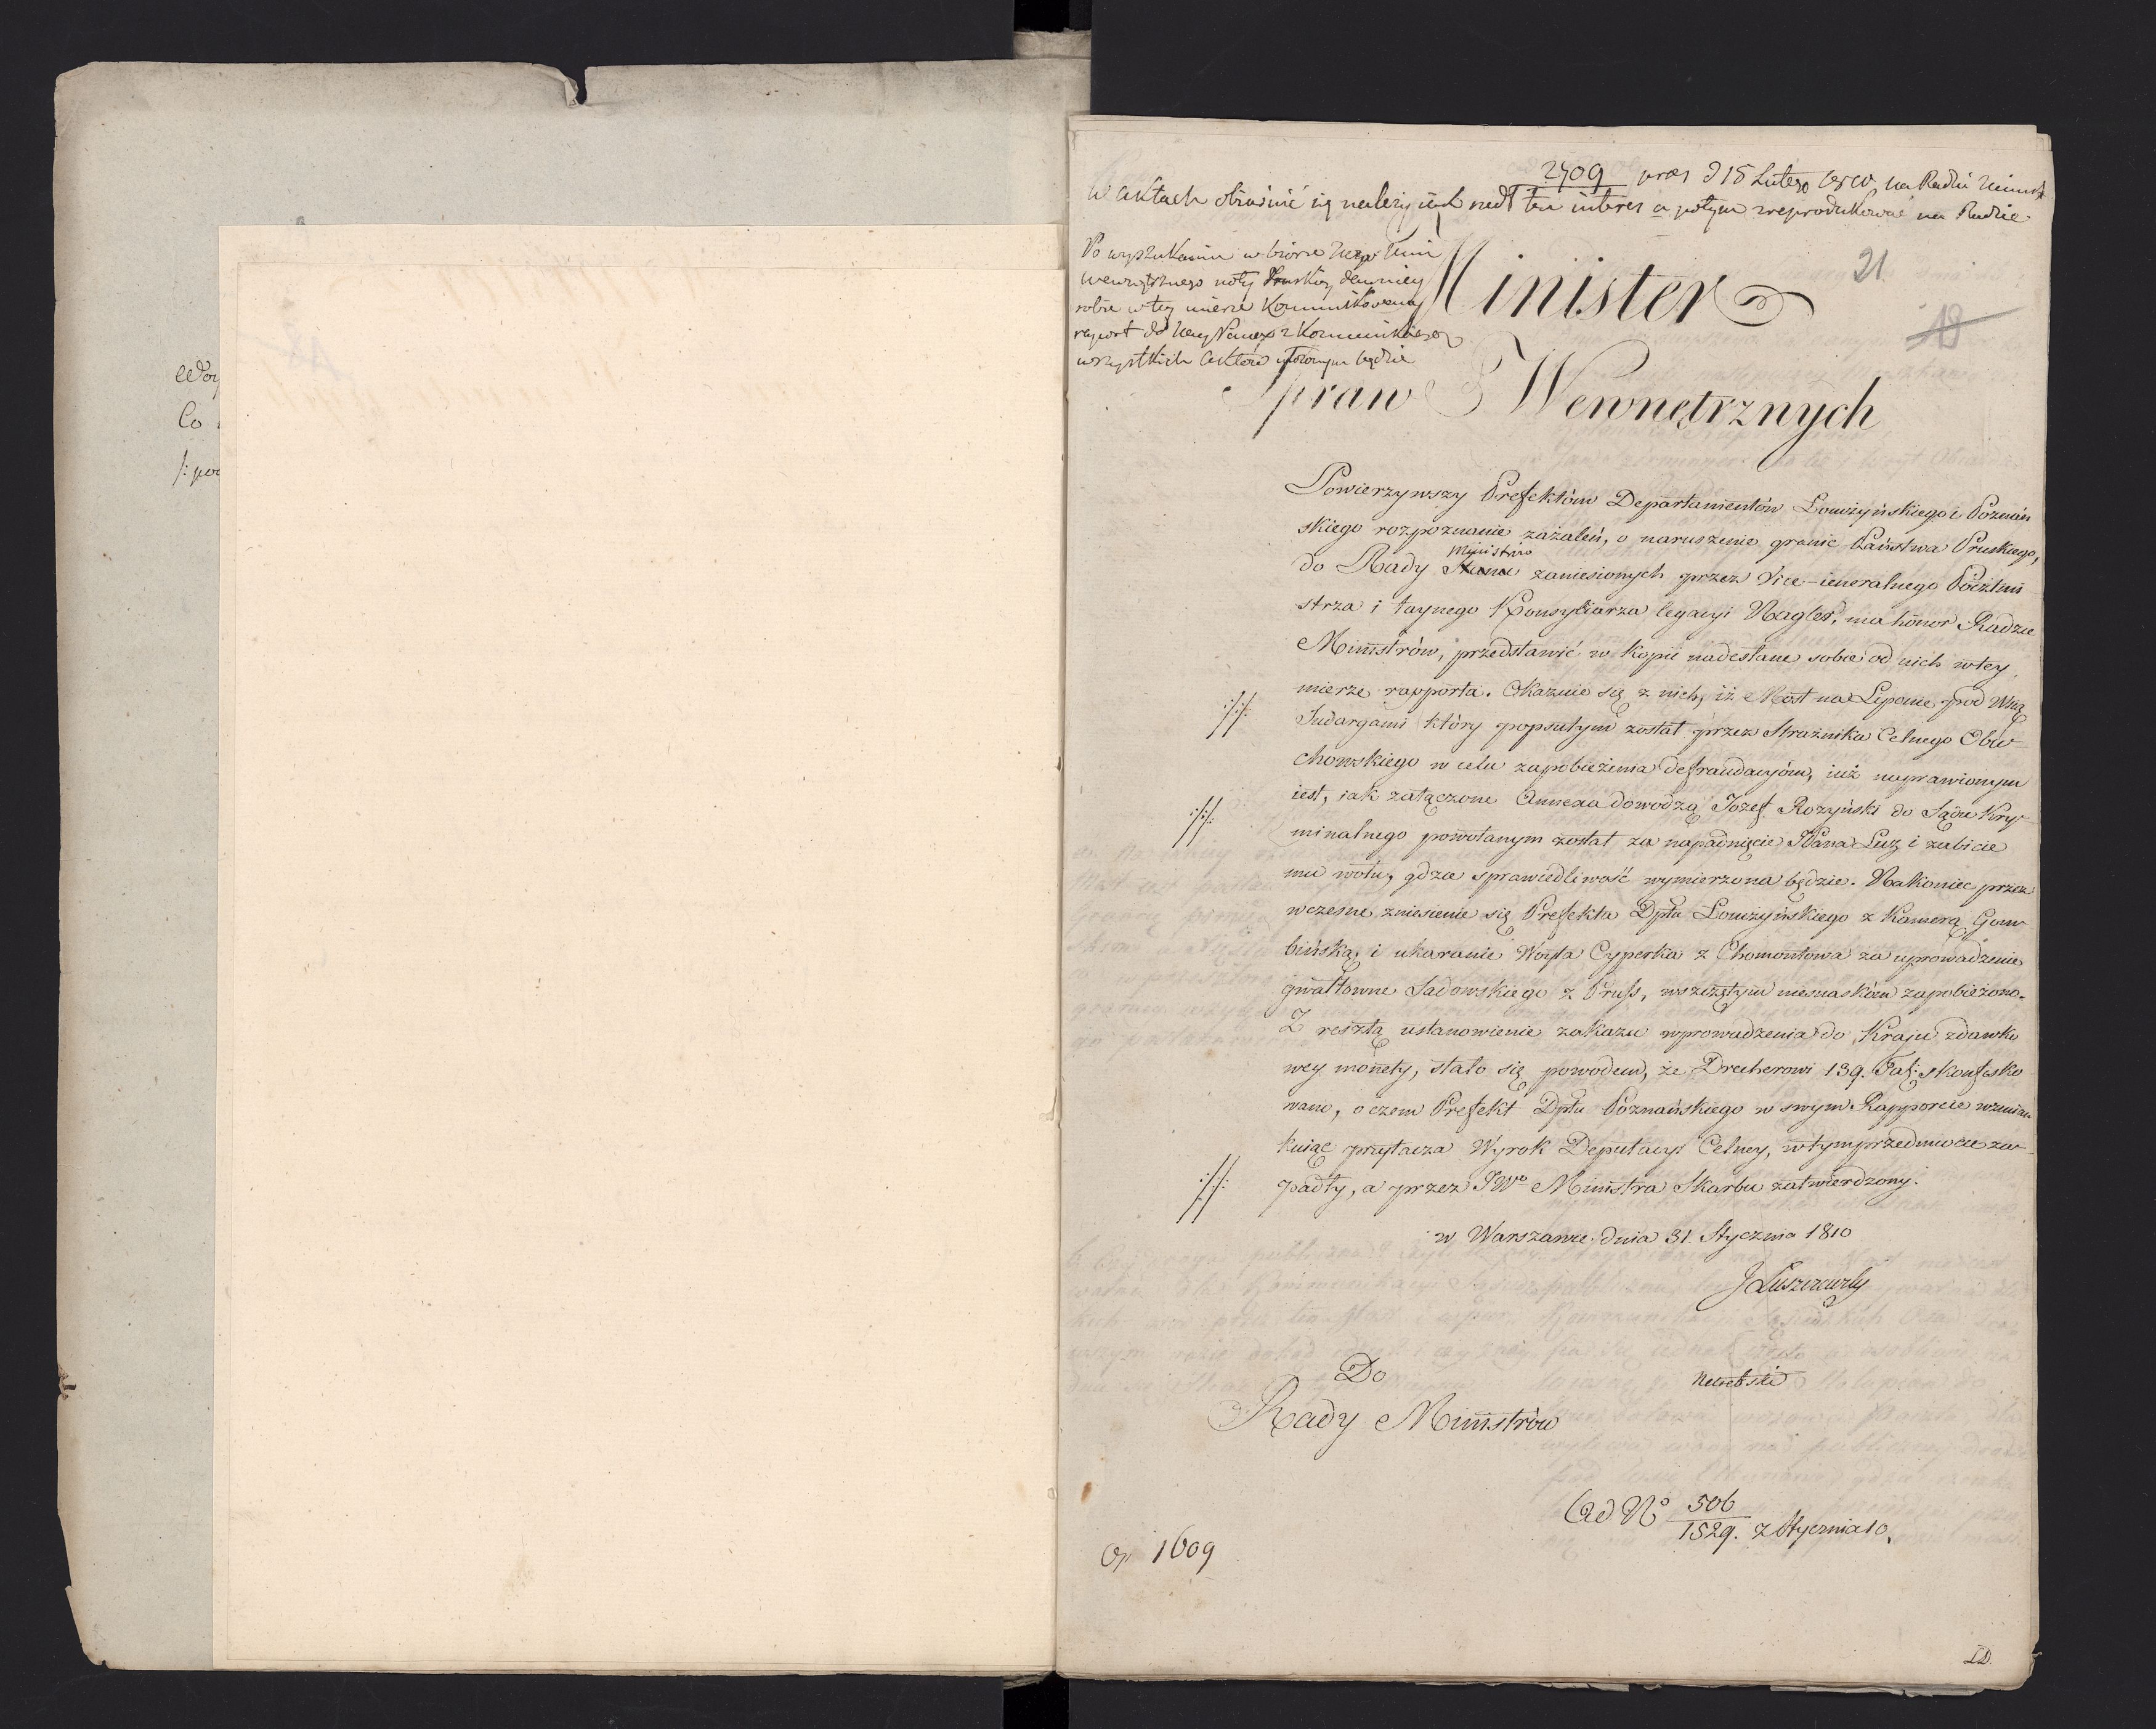 2409 pres d 15 Lutego 1810, na Radzie
w Aktach obiaśnić się należy iak szedł ten interes a potym zreprodukować na Radzie
Po wyszukaniu w biorze
wewnętrznego noty Pruskiey dawniey
sobie w tey mierze kommunikowaney
raport do z kommunikacyą
wszystkich aktów będzie
21
18
Minister
Spraw Wewnętrznych
Powierzywszy Prefektóm Departamentów Łomżyńskiego i Poznań
skiego rozpoznanie zażaleń, o naruszenie granic Państwa Pruskiego,
Ministrów
do Rady Stanu zaniesionych przez Vice-ieneralnego Pocztmi
strza i taynego Konsyliarza legacyi Nagler, ma honor Radzie
Ministrów, przedstawić w kopii nadesłane sobie od nich w tey
mierze rapporta. Okazuie się z nich, iż Most na Liponie pod Wsią
Sudargami który popsutym został przez Strażnika Celnego Obu
chowskiego w celu zapobieżenia defraudacyóm, iuż naprawionym
iest, iak załączone Annexa dowodzą Jozef Rozyński do Sądu Kry
minalnego powołanym został za napadnięcie Pana Luz i zabicie
mu wołu, gdzie sprawiedliwość wymierzona będzie. Nakoniec przez
wczesne zniesienie się Prefekta Dptu Łomżyńskiego z Kamerą Gum
bińską, i ukaranie Woyta Cyperka z Chomontowa za uprowadzenie
gwałtowne Sadowskiego z Pruss, wszczętym niesnaskóm zapobieżono.
Z resztą ustanowienie zakazu wprowadzenia do Kraju zdawko
wey monety, stało się powodem, że Drecherowi 139. Tal: skonfisko
wano, o czem Prefekt Dptu Poznańskiego w swym Rapporcie wzmian
kuiąc przytacza Wyrok Deputacyi Celney, w tym przedmiocie za-
padły, a przez JWo Ministra Skarbu zatwierdzony.
w Warszawie dnia 31. Stycznia 1810
J Łuszczewski
Do
Rady Ministrów
Ad No 506
1529. z Stycznia 10.
1609
LD.
Co